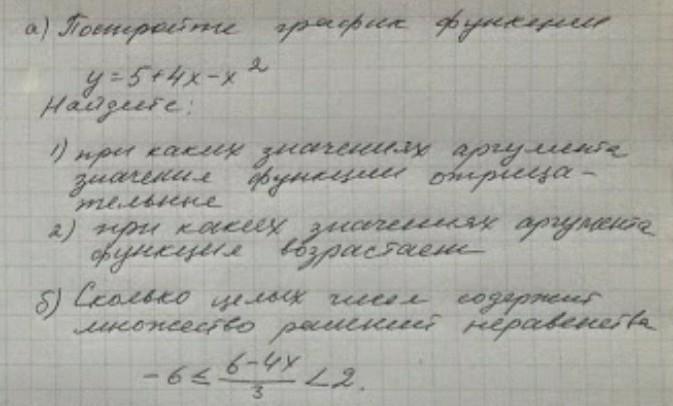 а) Постройте график функции
y = 5 + 4x - x²
Найдите:
1) при каких значениях аргумента
значения функции отрица-
тельные
2) при каких значениях аргумента
функция возрастает
б) Сколько целых чисел содержит
множество решений неравенства
-6 ≤ (6-4x)/3 < 2.